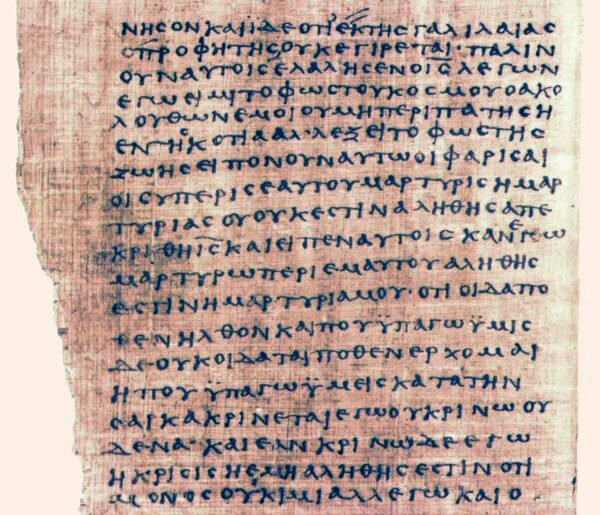 ΝΗϹΟΝΚΑΙΪΔΕΟΤΙΕΚΤΗϹΓΑΛΙΛΑΙΑϹ
ΟΠΡΟΦΗΤΗϹΟΥΚΕΓΙΡΕΤΑΙ·ΠΑΛΙΝ
ΟΥΝΑΥΤΟΙϹΕΛΑΛΗϹΕΝΟΙ̅Ϲ̅ΛΕΓΩΝ
ΕΓΩΕΙΜΙΤΟΦΩϹΤΟΥΚΟϹΜΟΥΟΑΚΟ
ΛΟΥΘΩΝΕΜΟΙΟΥΜΗΠΕΡΙΠΑΤΗϹΗ
ΕΝΤΗϹΚΟΤΙΑΑΛΛΕΞΕΙΤΟΦΩϹΤΗϹ
ΖΩΗϹΕΙΠΟΝΟΥΝΑΥΤΩΟΙΦΑΡΙϹΑΙ
ΟΙϹΥΠΕΡΙϹΕΑΥΤΟΥΜΑΡΤΥΡΙϹΗΜΑΡ
ΤΥΡΙΑϹΟΥΟΥΚΕϹΤΙΝΑΛΗΘΗϹΑΠΕ
ΚΡΙΘΗΙ̅Ϲ̅ΚΑΙΕΙΠΕΝΑΥΤΟΙϹΚΑΝΕΓΩ
ΜΑΡΤΥΡΩΠΕΡΙΕΜΑΥΤΟΥΑΛΗΘΗϹ
ΕϹΤΙΝΗΜΑΡΤΥΡΙΑΜΟΥ·ΟΤΙΟΙΔΑΠΟ
ΘΕΝΗΛΘΟΝΚΑΙΠΟΥΫΠΑΓΩΫΜΙϹ
ΔΕΟΥΚΟΙΔΑΤΑΙΠΟΘΕΝΕΡΧΟΜΑΙ
ΗΠΟΥΫΠΑΓΩΫΜΕΙϹΚΑΤΑΤΗΝ
ϹΑΡΚΑΚΡΙΝΕΤΑΙΕΓΩΟΥΚΡΙΝΩΟΥ
ΔΕΝΑ·ΚΑΙΕΑΝΚΡΙΝΩΔΕΕΓΩ
ΗΚΡΙϹΙϹΗΕΜΗΑΛΗΘΗϹΕϹΤΙΝΟΤΙ
ΜΟΝΟϹΟΥΚΙΜΙΑΛΛΕΓΩΚΑΙΟ